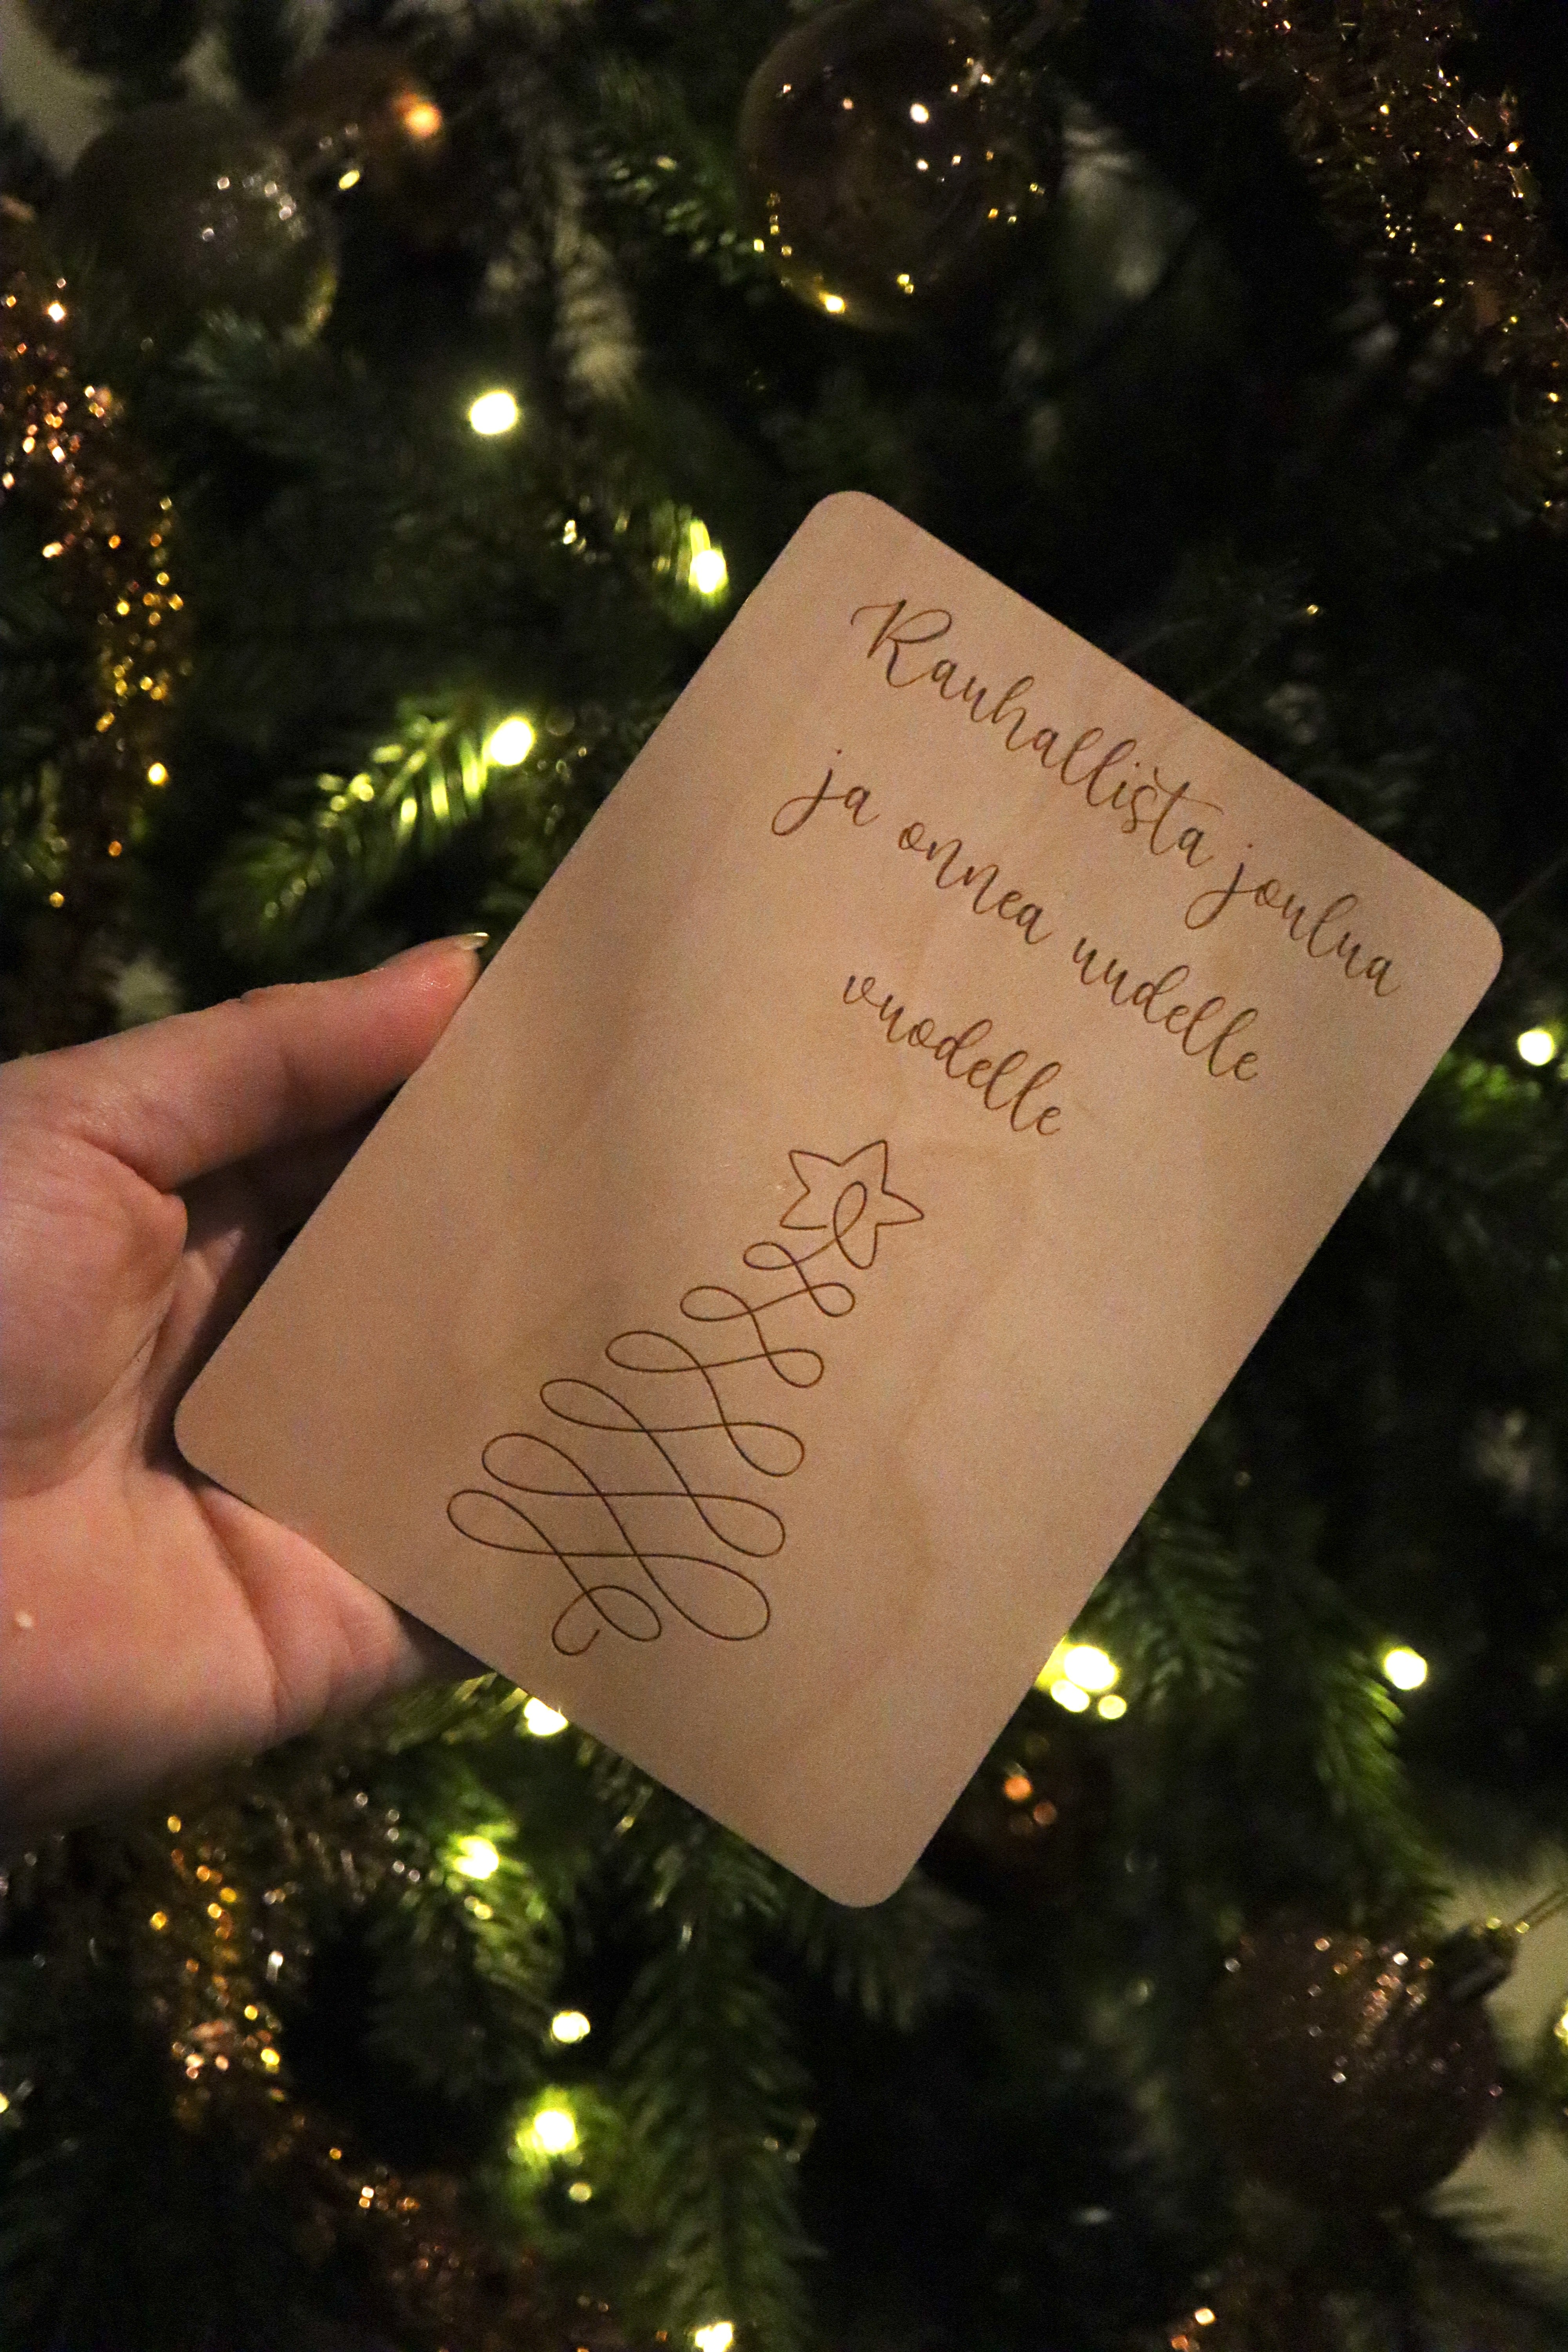 Rauhallista joulua
ja onnea uudelle
vuodelle